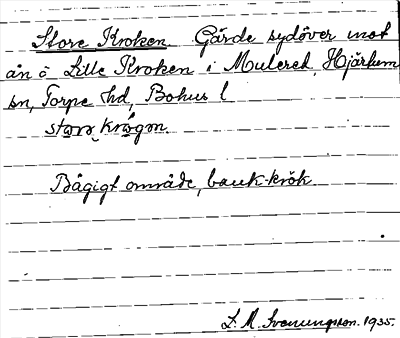 Store Kroken. Gärde sydöver mot
ån ö Lille Kroken i Mulered, Hjärtum
sn, Torpe hd, Bohus l
storə krogən.
Bågigt område, bauk-krök
L. M. Svenungsson. 1935.